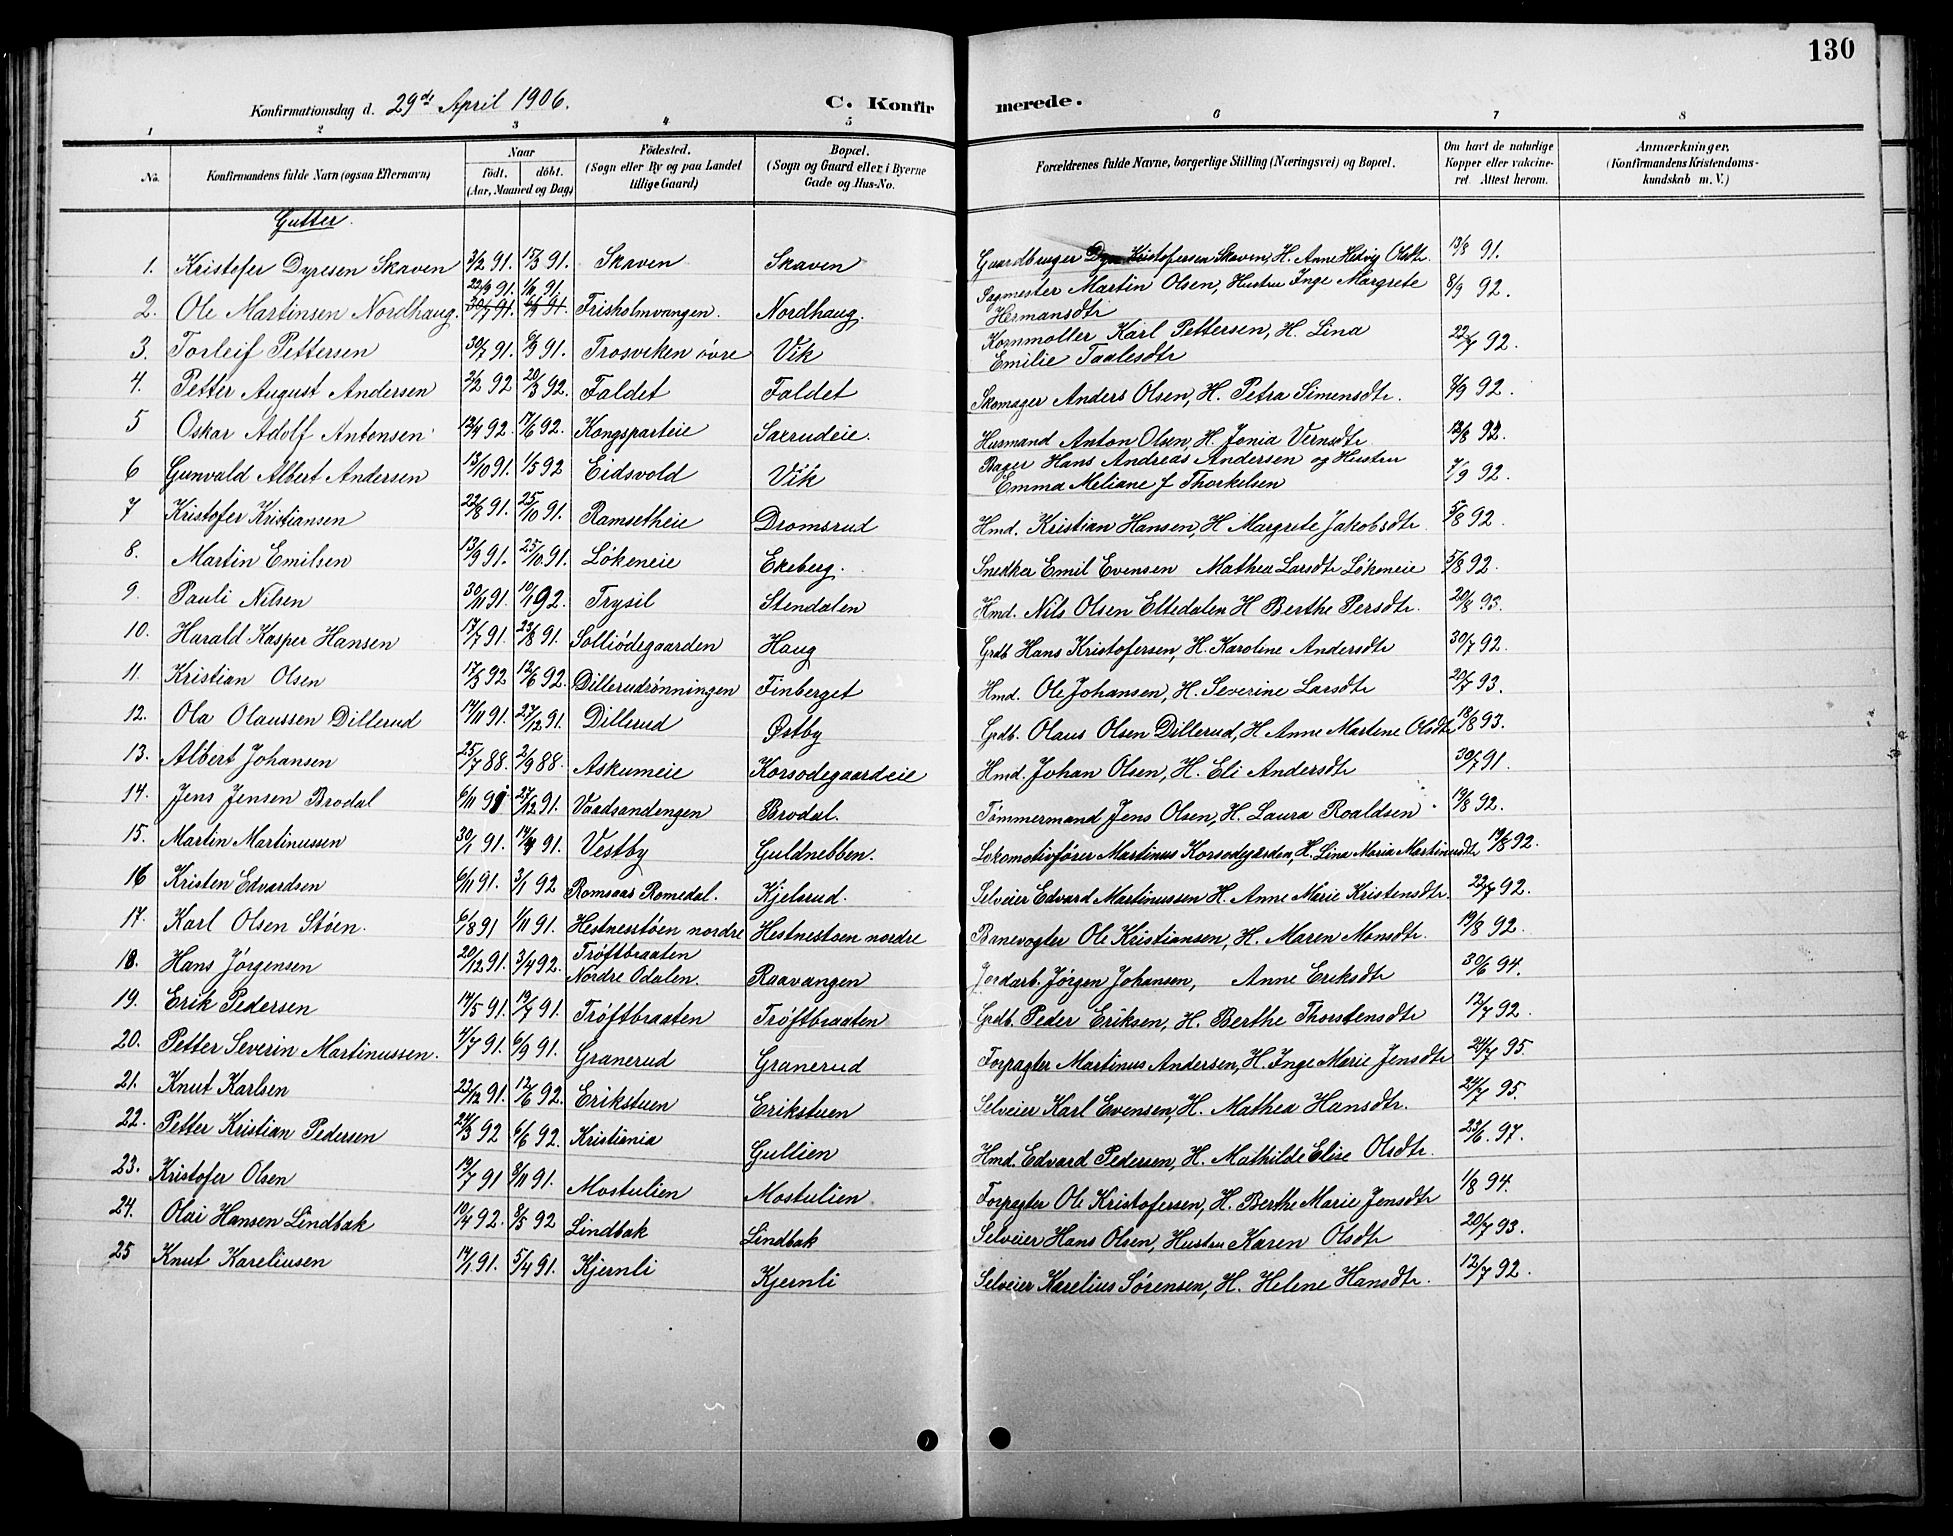 130
Konfirmationsdag d. 29de April 1906. C. Konfir merede.
1 2 3 4 5 6 7 8
No. Konfirmandens fulde Navn (ogsaa Efternavn) Naar født. døbt. (Aar, Maaned og Dag) Fødested. (Sogn eller By og paa Landet tillige Gaard) Bopæl. (Sogn og Gaard eller i Byerne Gade og Hus-No. Forældrenes fulde Navne, borgerlige Stilling (Næringsvei) og Bopæl. Om havt de naturlige Kopper eller vakcineret. Attest herom. Anmerkninger. (Konfirmandens Kristendomskundskab m. V.)
Gutter.
1. Kristofer Dyresen Skaven 3/2 91. 15/3 91. Skaven Skaven Gaardbruger Dyre Kristofersen Skaven, H. Anne Hedvig Olsdtr. 13/8 91.
2. Ole Martinsen Nordhaug. 22/9 91. 1/11 91. Frisholmvangen. Nordhaug. Sagmester Martin Olsen, Hustru Inge Margrete Hermansdtr 8/9 92.
3. Torleif Pettersen 30/7 91. 6/9 91. Trosviken øvre Vik Kornmøller Karl Pettersen, H. Lina Emilie Taalesdtr 22/7 92.
4. Petter August Andersen 2/2 92 20/3 92. Faldet Faldet Skomager Anders Olsen, H. Petra Simensdtr. 8/9 92.
5 Oskar Adolf Antonsen 12/4 92. 17/6 92. Kongsparteie Saxrudeie. Husmand Anton Olsen, H. Jonia Vernsdtr. 12/8 92.
6 Gunvald Albert Andersen 13/10 91. 1/5 92 Eidsvold Vik Bager Hans Andreas Andersen og Hustru Emma Meliane f Thorkelsen 7/9 92.
7 Kristofer Kristiansen 22/8 91. 25/10 91. Ramsetheie Dromsrud Hmd. Kristian Hansen, H Margrete Jakobsdtr. 5/8 92.
8. Martin Emilsen 13/9 91. 25/10 91. Løkeneie Ekeberg. Snedker Emil Evensen Mathea Larsdtr Løkeneie 5/8 92.
9. Pauli Nilsen 30/11 91. 10/1 92. Trysil Stendalen Hmd. Nils Olsen Eltedalen H Berthe Persdtr. 20/8 93.
10. Harald Kasper Hansen 17/7 91. 23/8 91. Solliødegaarden Haug Grdb. Hans Kristofersen, H. Karoline Andersdtr 30/7 92.
11. Kristian Olsen 17/3 92 12/6 92. Dillerudrønningen Finberget Hmd. Ole Johansen, H. Severine Larsdtr 20/7 93.
12. Ola Olaussen Dillerud 14/11 91. 27/12 91. Dillerud Østby Grdb. Olaus Olsen Dillerud, H Anne Martene Olsdtr 18/8 93.
13. Albert Johansen 25/7 88. 2/9 88. Askumeie Korsodegaardeie Hmd. Johan Olsen, H. Eli Andersdtr 30/7 91.
14. Jens Jensen Brodal 6/11 91 27/12 91. Vaadsandengen Brodal. Tømmermand Jens Olsen, H. Laura Roaldsen 19/8 92.
15. Martin Martinussen 30/1 91. 14/4 91. Vestby Guldnebben. Lokomotivfører Martinus Korsødegaarden, H. Lina Maria Martinusdtr 19/8 92.
16 Kristen Edvardsen 6/11 91. 3/1 92 Romsaas Romedal. Kjelsrud. Selveier Edvard Martinussen H. Anne Marie Kristensdtr. 22/7 92.
17. Karl Olsen Støen. 6/8 91 1/11 91. Hestnesstøen nordre Hestnestøen nordre Banevogter Ole Kristiansen, H. Maren Monsdtr. 19/8 92.
18. Hans Jørgensen 20/12 91. 3/4 92. Trøftbraaten Nordre Odalen. Raavangen Jordarb. Jørgen Johansen, Anne Eriksdtr 30/6 94.
19. Erik Pedersen 14/5 91. 19/7 91. Trøftbraaten Trøftbraaten Grdb. Peder Eriksen, H. Berthe Thorstensdtr 12/7 92.
20. Petter Severin Martinussen. 4/7 91. 6/9 91. Granerud Granerud Forpagter Martinus Andersen, H. Inge Marie Jensdtr 24/7 95.
21. Knut Karlsen 22/12 91. 12/6 92. Erikstuen Erikstuen Selveier Karl Evensen, H. Mathea Hansdtr. 24/7 95.
22. Petter Kristian Pedersen 24/3 92 6/6 92. Kristiania Gullien Hmd. Edvard Pedersen, H. Mathilde Elise Olsdtr. 23/6. 97.
23. Kristofer Olsen 19/7 91 8/11 91. Mostulien Mostulien Forpagter Ole Kristofersen, H. Berthe Marie Jensdtr 1/8 94.
24. Olai Hansen Lindbak 10/4 92. 8/5 92 Lindbak Lindbak Selveier Hans Olsen, Hustru Karen Olsdtr 20/7 93.
25 Knut Kareliusen 14/1 91. 5/4 91. Kjernli Kjernli Selveier Karelius Sørensen, H. Helene Hansdtr. 12/7 92.